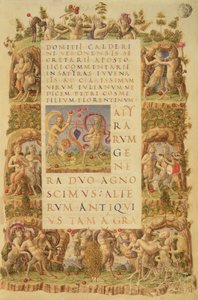 DOMITII CALDERI
NI VERONENSIS SE
CRETARII APOSTO
LICI COMMENTARII
IN SATYRAS IVVENA
LIS AD CLARISSIMVM
VIRVM IVLIANVM ME
DICEM PETRI COSME
FILIVM FLORENTINVM
SATY
RA
RVM
GE
NE
RA DVO AGNO
SCIMVS: ALTE
RVM ANTIQVI
VS TAM A GRA